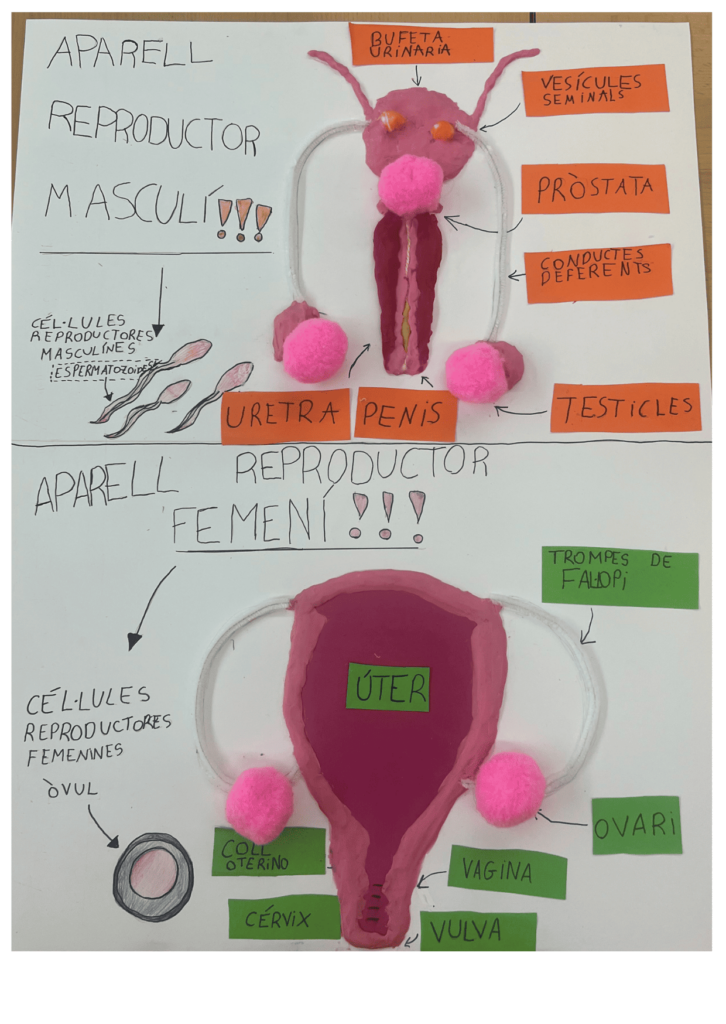 APARELL
REPRODUCTOR
MASCULÍ!!!
BUFETA
URINARIA
VESÍCULES
SEMINALS
PRÒSTATA
CONDUCTES
DEFERENTS
CÉL·LULES
REPRODUCTORES
MASCULINES
ESPERMATOZOIDES
URETRA
PENIS
TESTICLES
APARELL REPRODUCTOR
FEMENÍ!!!
TROMPES DE
FAL·LOPI
ÚTER
CÉL·LULES
REPRODUCTORES
FEMENINES
ÒVUL
OVARI
COLL
OTERINO
VAGINA
CÉRVIX
VULVA